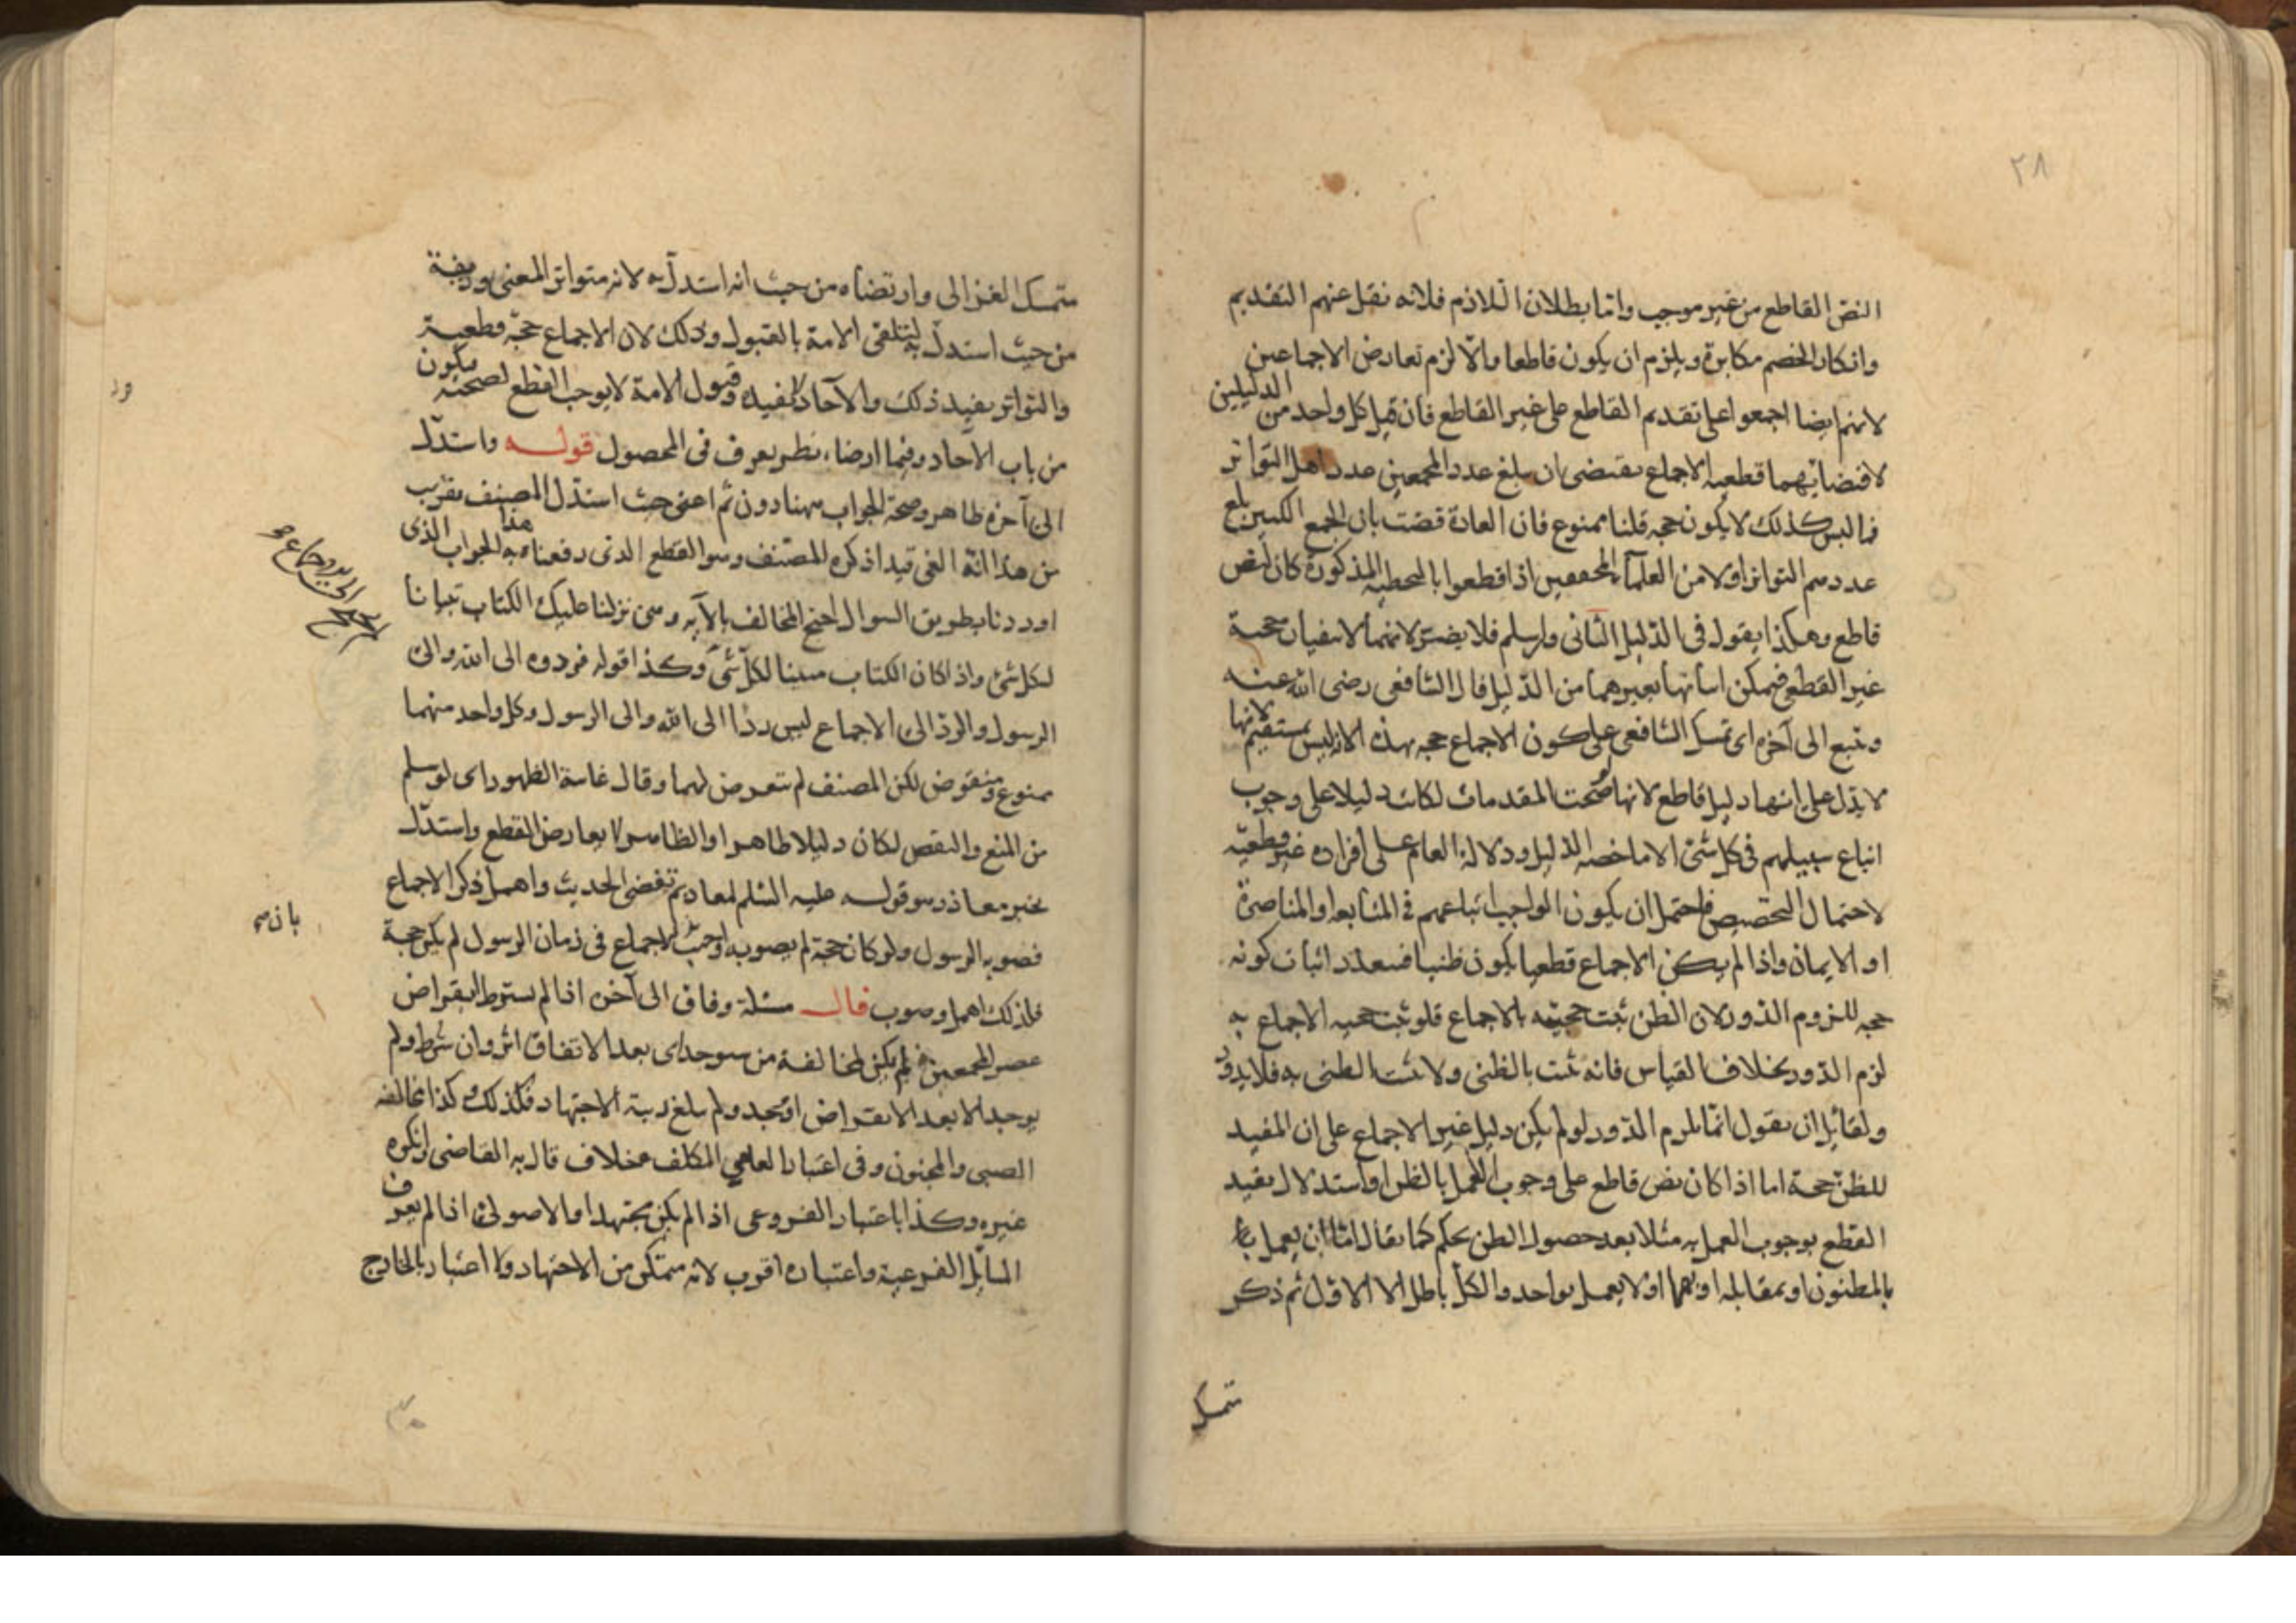 ٢٨
النص القاطع من غير موجب واما بطلان اللازم فلانه نقل عنهم التقديم
وانكار الخصم مكابرة ويلزم ان يكون قاطعا والا لزم تعارض الاجماعين
لانهم ايضا اجمعوا على تقديم القاطع على غير القاطع فان قيل كل واحد من الدليلين
لاقتضائهما قطعية الاجماع يقتضى ان يبلغ عدد المجمعين عدد اهل التواتر
فما ليس كذلك لا يكون حجه قلنا ممنوع فان العادة قضت بان الجمع الكبير بلغ
عددهم التواتر اولا من العلماء المحققين اذا قطعوا بالتخطية المذكورة كان لنص
قاطع وهكذا يقول فى الدليل الثانى وان سلم فلا يضر لانهما لا ينفيان حجية
غير القطعى فيمكن اثباتها بغيرهما من الدليل قال الشافعى رضى الله عنه
ويتبع الى آخره اى تمسك الشافعى على كون الاجماع حجه بهذه الاية ليس بمستقيم لانها
لا يدل على انها دليل قاطع لانها لو صحت المقدمات لكانت دليلا على وجوب
اتباع سبيلهم فى كل شئ الا ما خصه الدليل ودلالة العام على افراده غير قطعية
لاحتمال التخصيص فاحتمل ان يكون الواجب اتباعهم فى المتابعة او المناصرة
او الايمان واذا لم يكن الاجماع قطعيا يكون ظنيا فيتعذر اثبات كونه
حجه للزوم الدور لان الظن ثبت حجيته بالاجماع فلو ثبت حجيه الاجماع به
لزم الدور بخلاف القياس فانه ثبت بالظنى ولا يثبت الظنى به فلا يدور
ولقائل ان يقول انما يلزم الدور لو لم يكن دليل غير الاجماع على ان المفيد
للظن حجة اما اذا كان نص قاطع على وجوب العمل بالظن او استدلال يفيد
القطع بوجوب العمل به مثلا بعد حصول الظن بحكم كما يقال اما ان يعمل
بالمظنون او بمقابله او بهما او لا يعمل بواحد والكل باطل الا الاول ثم ذكر
تمسك
متمسك الغزالى وارتضاه من حيث انه استدل به لانه متواتر المعنى وزيفه
من حيث استدل به لتلقى الامة بالقبول وذلك لان الاجماع حجة قطعية
والتواتر يفيد ذلك والآحاد لا تفيده وقبول الامة لا يوجب القطع لصحته يكون
من باب الآحاد وفيما ارضاه نظر يعرف فى المحصول قوله واستدل
الى آخره ظاهر وصحة الجواب ههنا دون ثم اعنى حيث استدل المصنف بقريب
من هذا انه الغى قيدا ذكره المصنف وهو القطع الذى دفعنا به هذا الجواب الذى
اوردنا بطريق السوال احتج المخالف بالآيه وهى نزلنا عليك الكتاب تبيانا
لكل شئ واذا كان الكتاب مبينا لكل شئ وكذا قوله فردوه الى الله والى
الرسول والرد الى الاجماع ليس ردا الى الله والى الرسول وكل واحد منهما
ممنوع ومنقوض لكن المصنف لم يتعرض لهما وقال غايته الظهور اى لو سلم
من المنع والنقص لكان دليلا ظاهرا والظاهر لا يعارض القطع واستدل
بخبر معاذ وهو قوله عليه السلم لمعاذ بم تقضى الحديث واهمل ذكر الاجماع
فصوبه الرسول ولو كان حجة لم يصوبه اجيب الاجماع فى زمان الرسول لم يكن حجة
فلذلك اهمل وصوب قال مسئلة وفاق الى آخره اذا لم يشترط انقراض
عصر المجمعين لم يكن لمخالفة من سيوجد اى بعد الاتفاق اثر وان شرط ولم
يوجد الا بعد الانقراض او يجد ولم يبلغ رتبة الاجتهاد فكذلك وكذا مخالفه
الصبى والمجنون وفى اعتبار العامي المكلف خلاف قال به القاضى وانكره
غيره وكذا باعتبار الفروعى اذا لم يكن مجتهدا والاصولى اذا لم يعرف
المسائل الفرعية واعتباره اقرب لانه متمكن من الاجتهاد ولا اعتبار بالخارج
بان